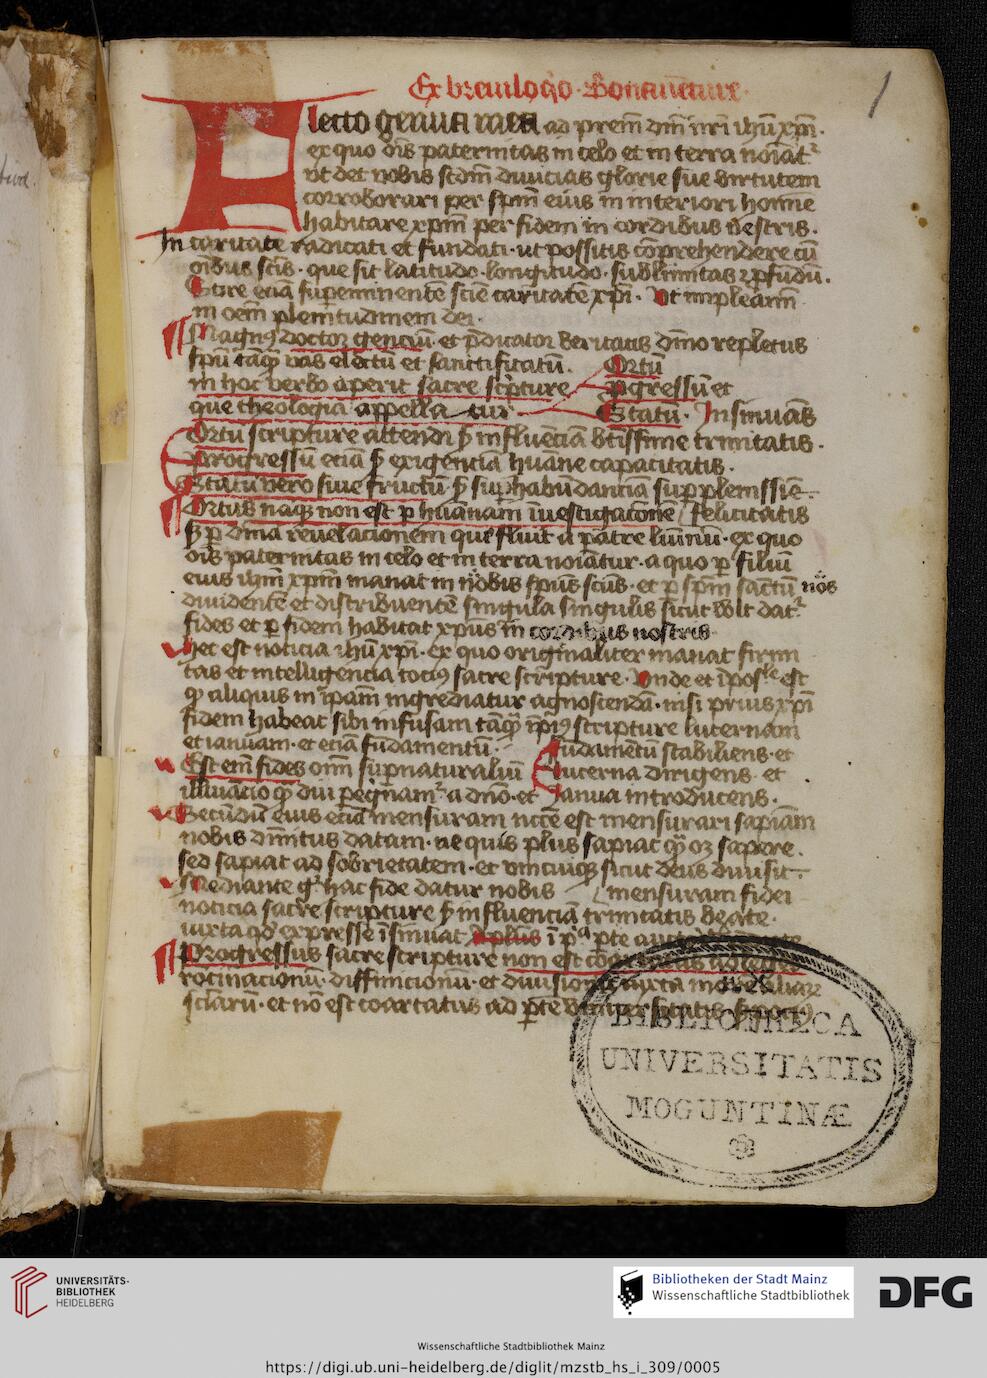 Ex breuiloqo Bonauenture
1
Flecto genua mea ad prem dm nri ihu xpi.
ex quo ois paternitas in celo et in terra noiat
vt det nobis scdm diuicias glorie sue virtutem
corroborari per spm eius in interiori homine
habitare xpm per fidem in cordibus vestris.
In caritate radicati et fundati ut possitis comprehendere cu
oibus scis. que sit latitudo. longitudo. sublimitas et pfudu.
Scire ecia supeminente scie caritate xpi. Vt impleamī
in oem plenitudinem dei.
Magnus doctor genciu et pdicator veritatis diuino repletus
spu taq vas electu et sanctificatu. Ortu
in hoc verbo aperit sacre scripture Pgressu et
que theologia appella tur Statu. Insinuas
Ortu scripture attendi p influencia btissime trinitatis.
Progressu ecia p exigencia huane capacitatis.
Statu vero siue fructu p suphabundancia supplenissie
Ortus naq non est p huanam inuestigacone felicitatis
s p diuina reuelacionem que fluit a patre luminu. ex quo
ois paternitas in celo et in terra noiatur. a quo p filiu
eius ihm xpm manat in nobis spus scus. et p spm sanctu nos
diuidente et distribuente singula singulis sicut vult dat
fides et p fidem habitat xpus in cordibus nostris
Hec est noticia ihu xpi. ex quo originaliter manat firmi
tas et intelligencia tocius sacre scripture. Vnde et iposle est
q aliquis in ipam ingrediatur agnoscenda. nisi prius xpi
fidem habeat sibi infusam taq ipius scripture lucernam
et ianuam. et ecia fundamentu. Fudametu stabiliens. et
Est em fides oim supnaturaliu Lucerna dirigens. et
illuiacio q diu pegnam a dno. et Ianua introducens.
Secundu eius ecia mensuram ncce est mensurari sapiam
nobis diuinitus datam. ne quis plus sapiat q oz sapere.
sed sapiat ad sobrietatem. et vnicuiq sicut deus diuisit
Mediante g hac fide datur nobis mensuram fidei
noticia sacre scripture p influencia trinitatis beate.
iuxta qd expresse isinuat i pa pte
Progressus sacre scripture non est coartatus
rocinacionu. diffinicionu. et diuisionu iuxta more aliarum
sciaru. et no est coartatus ad pte vniuersitatis
BIBLIOTHECA
UNIVERSITATIS
MOGUNTINÆ
UNIVERSITÄTS-
BIBLIOTHEK
HEIDELBERG
Bibliotheken der Stadt Mainz
Wissenschaftliche Stadtbibliothek
DFG
Wissenschaftliche Stadtbibliothek Mainz
https://digi.ub.uni-heidelberg.de/diglit/mzstb_hs_i_309/0005